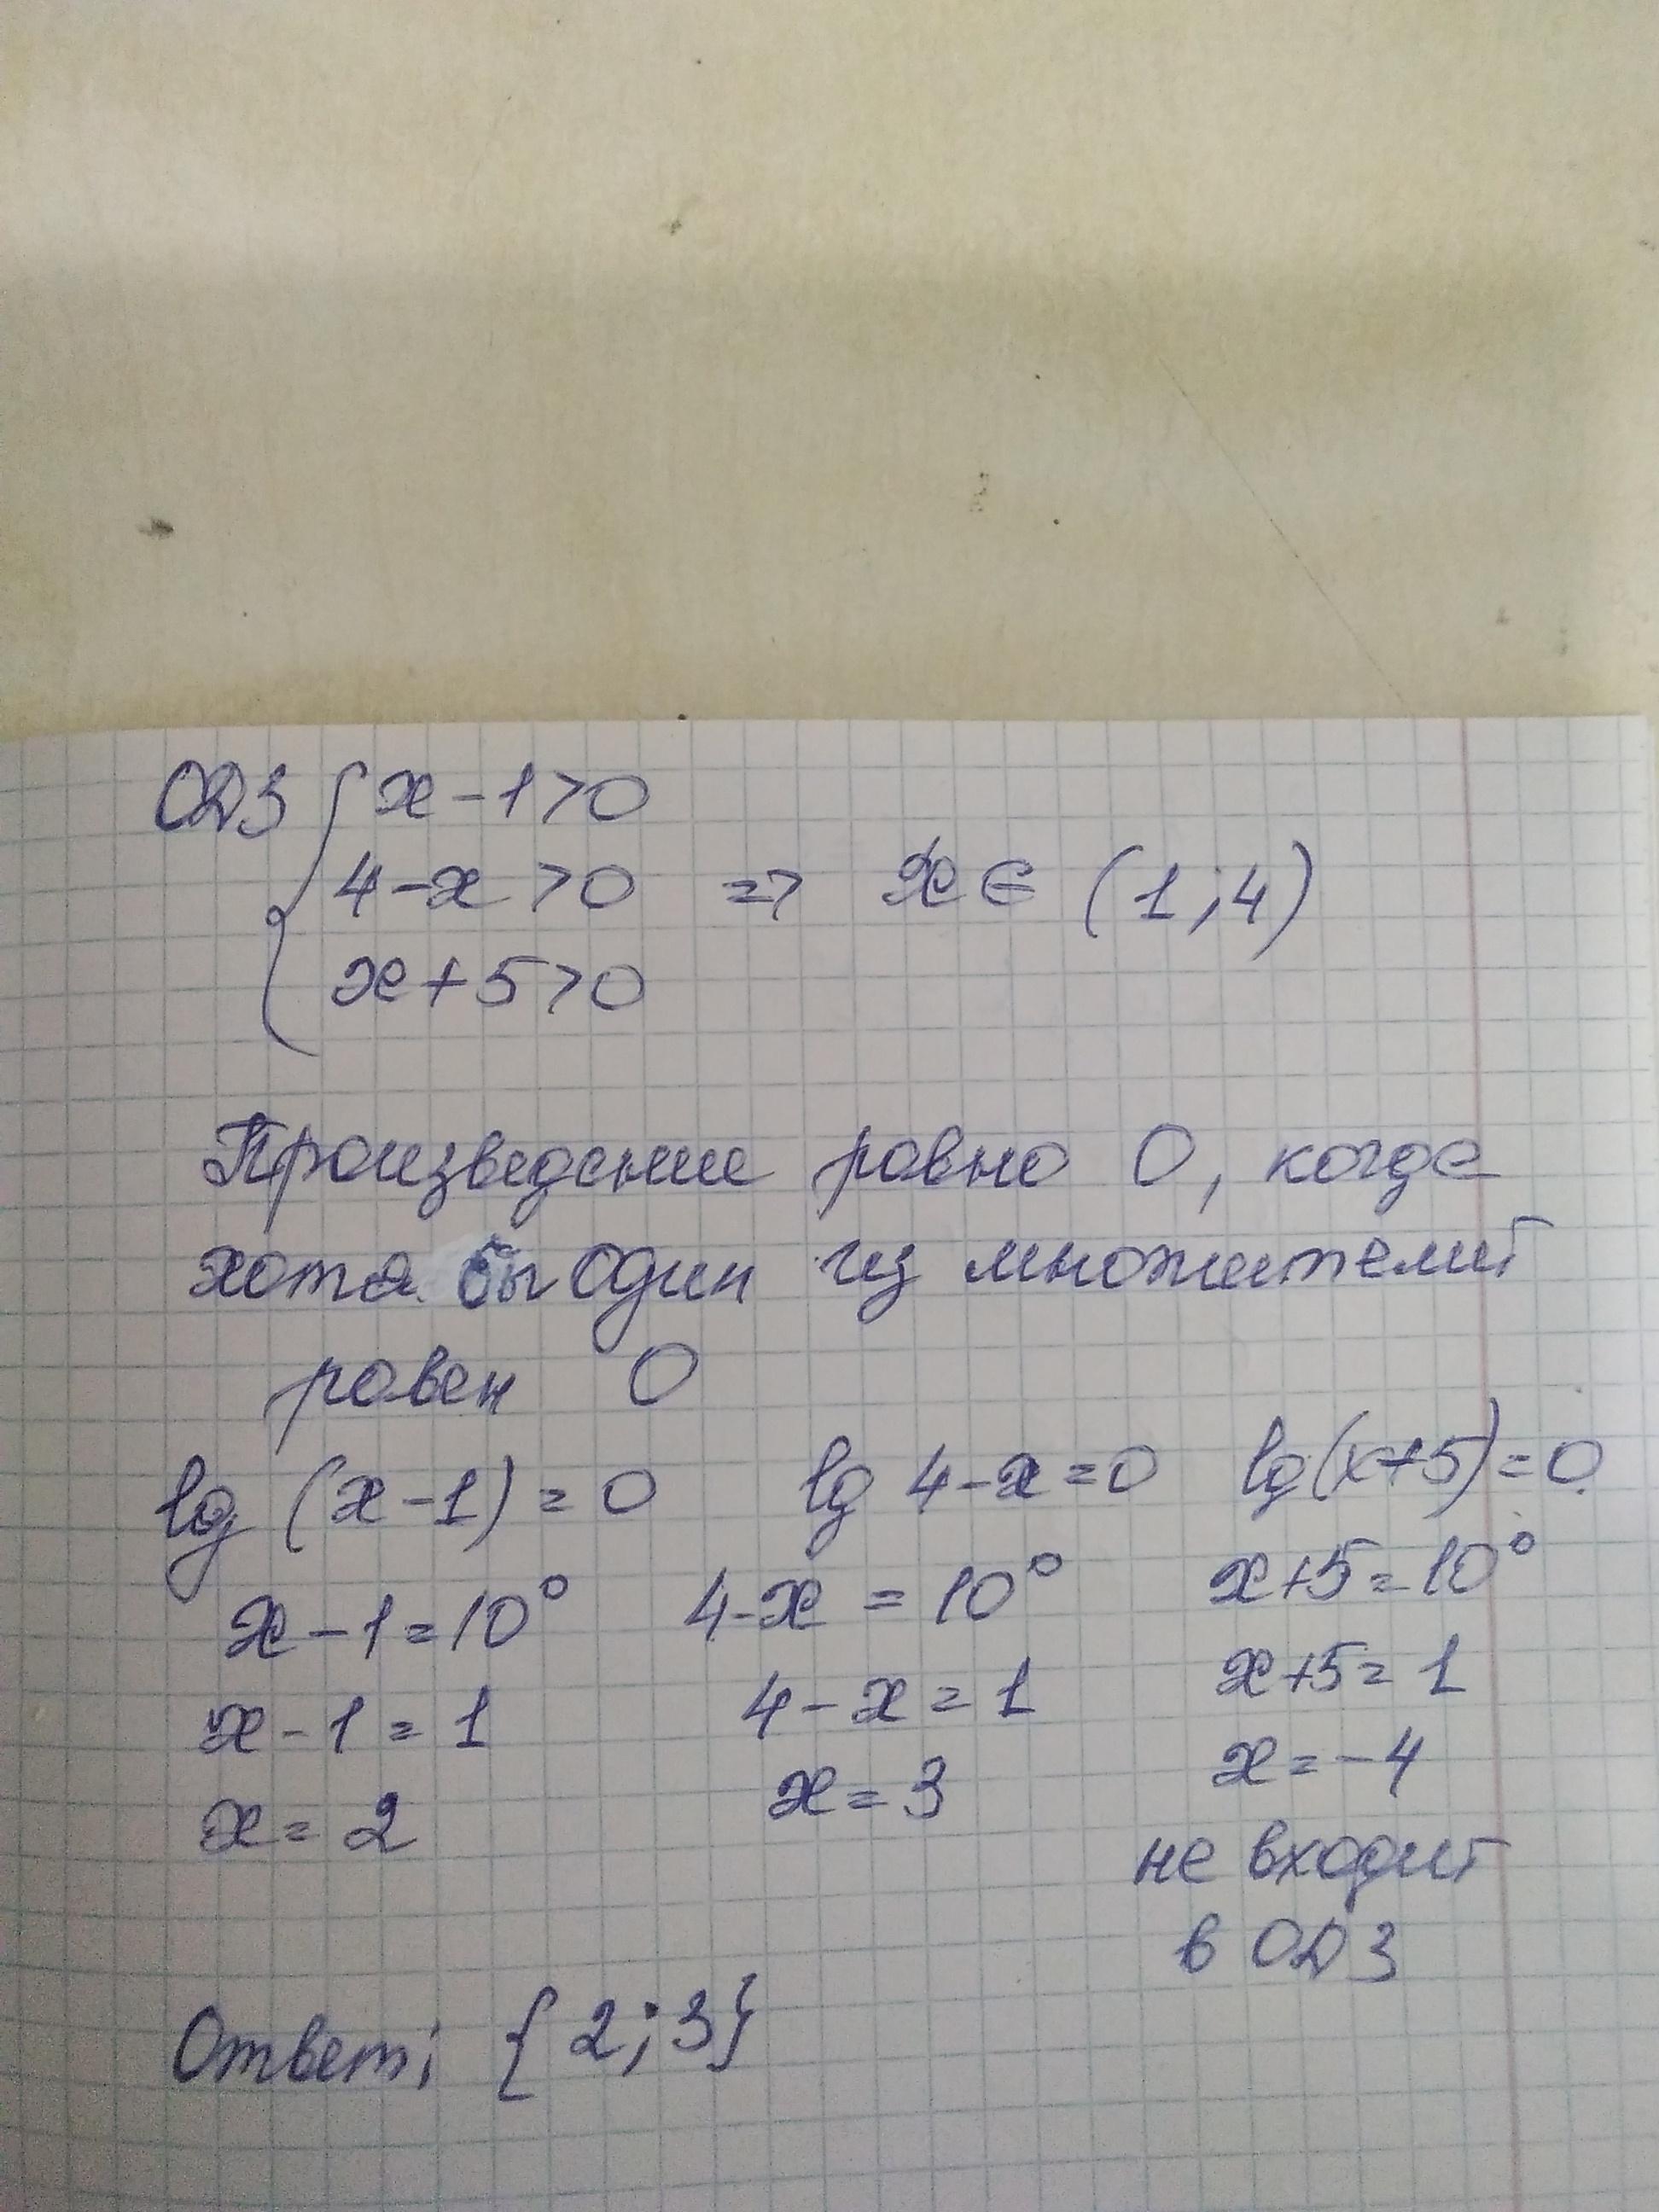 ОДЗ { x-1>0
4-x>0 => x∈ (1;4)
x+5>0
Произведение равно 0, когда
хота бы один из множителей
равен 0
lg (x-1)=0 lg 4-x=0 lg(x+5)=0
x-1=10⁰ 4-x=10⁰ x+5=10⁰
x-1=1 4-x=1 x+5=1
x=2 x=3 x=-4
не входит
в ОДЗ
Ответ: {2;3}